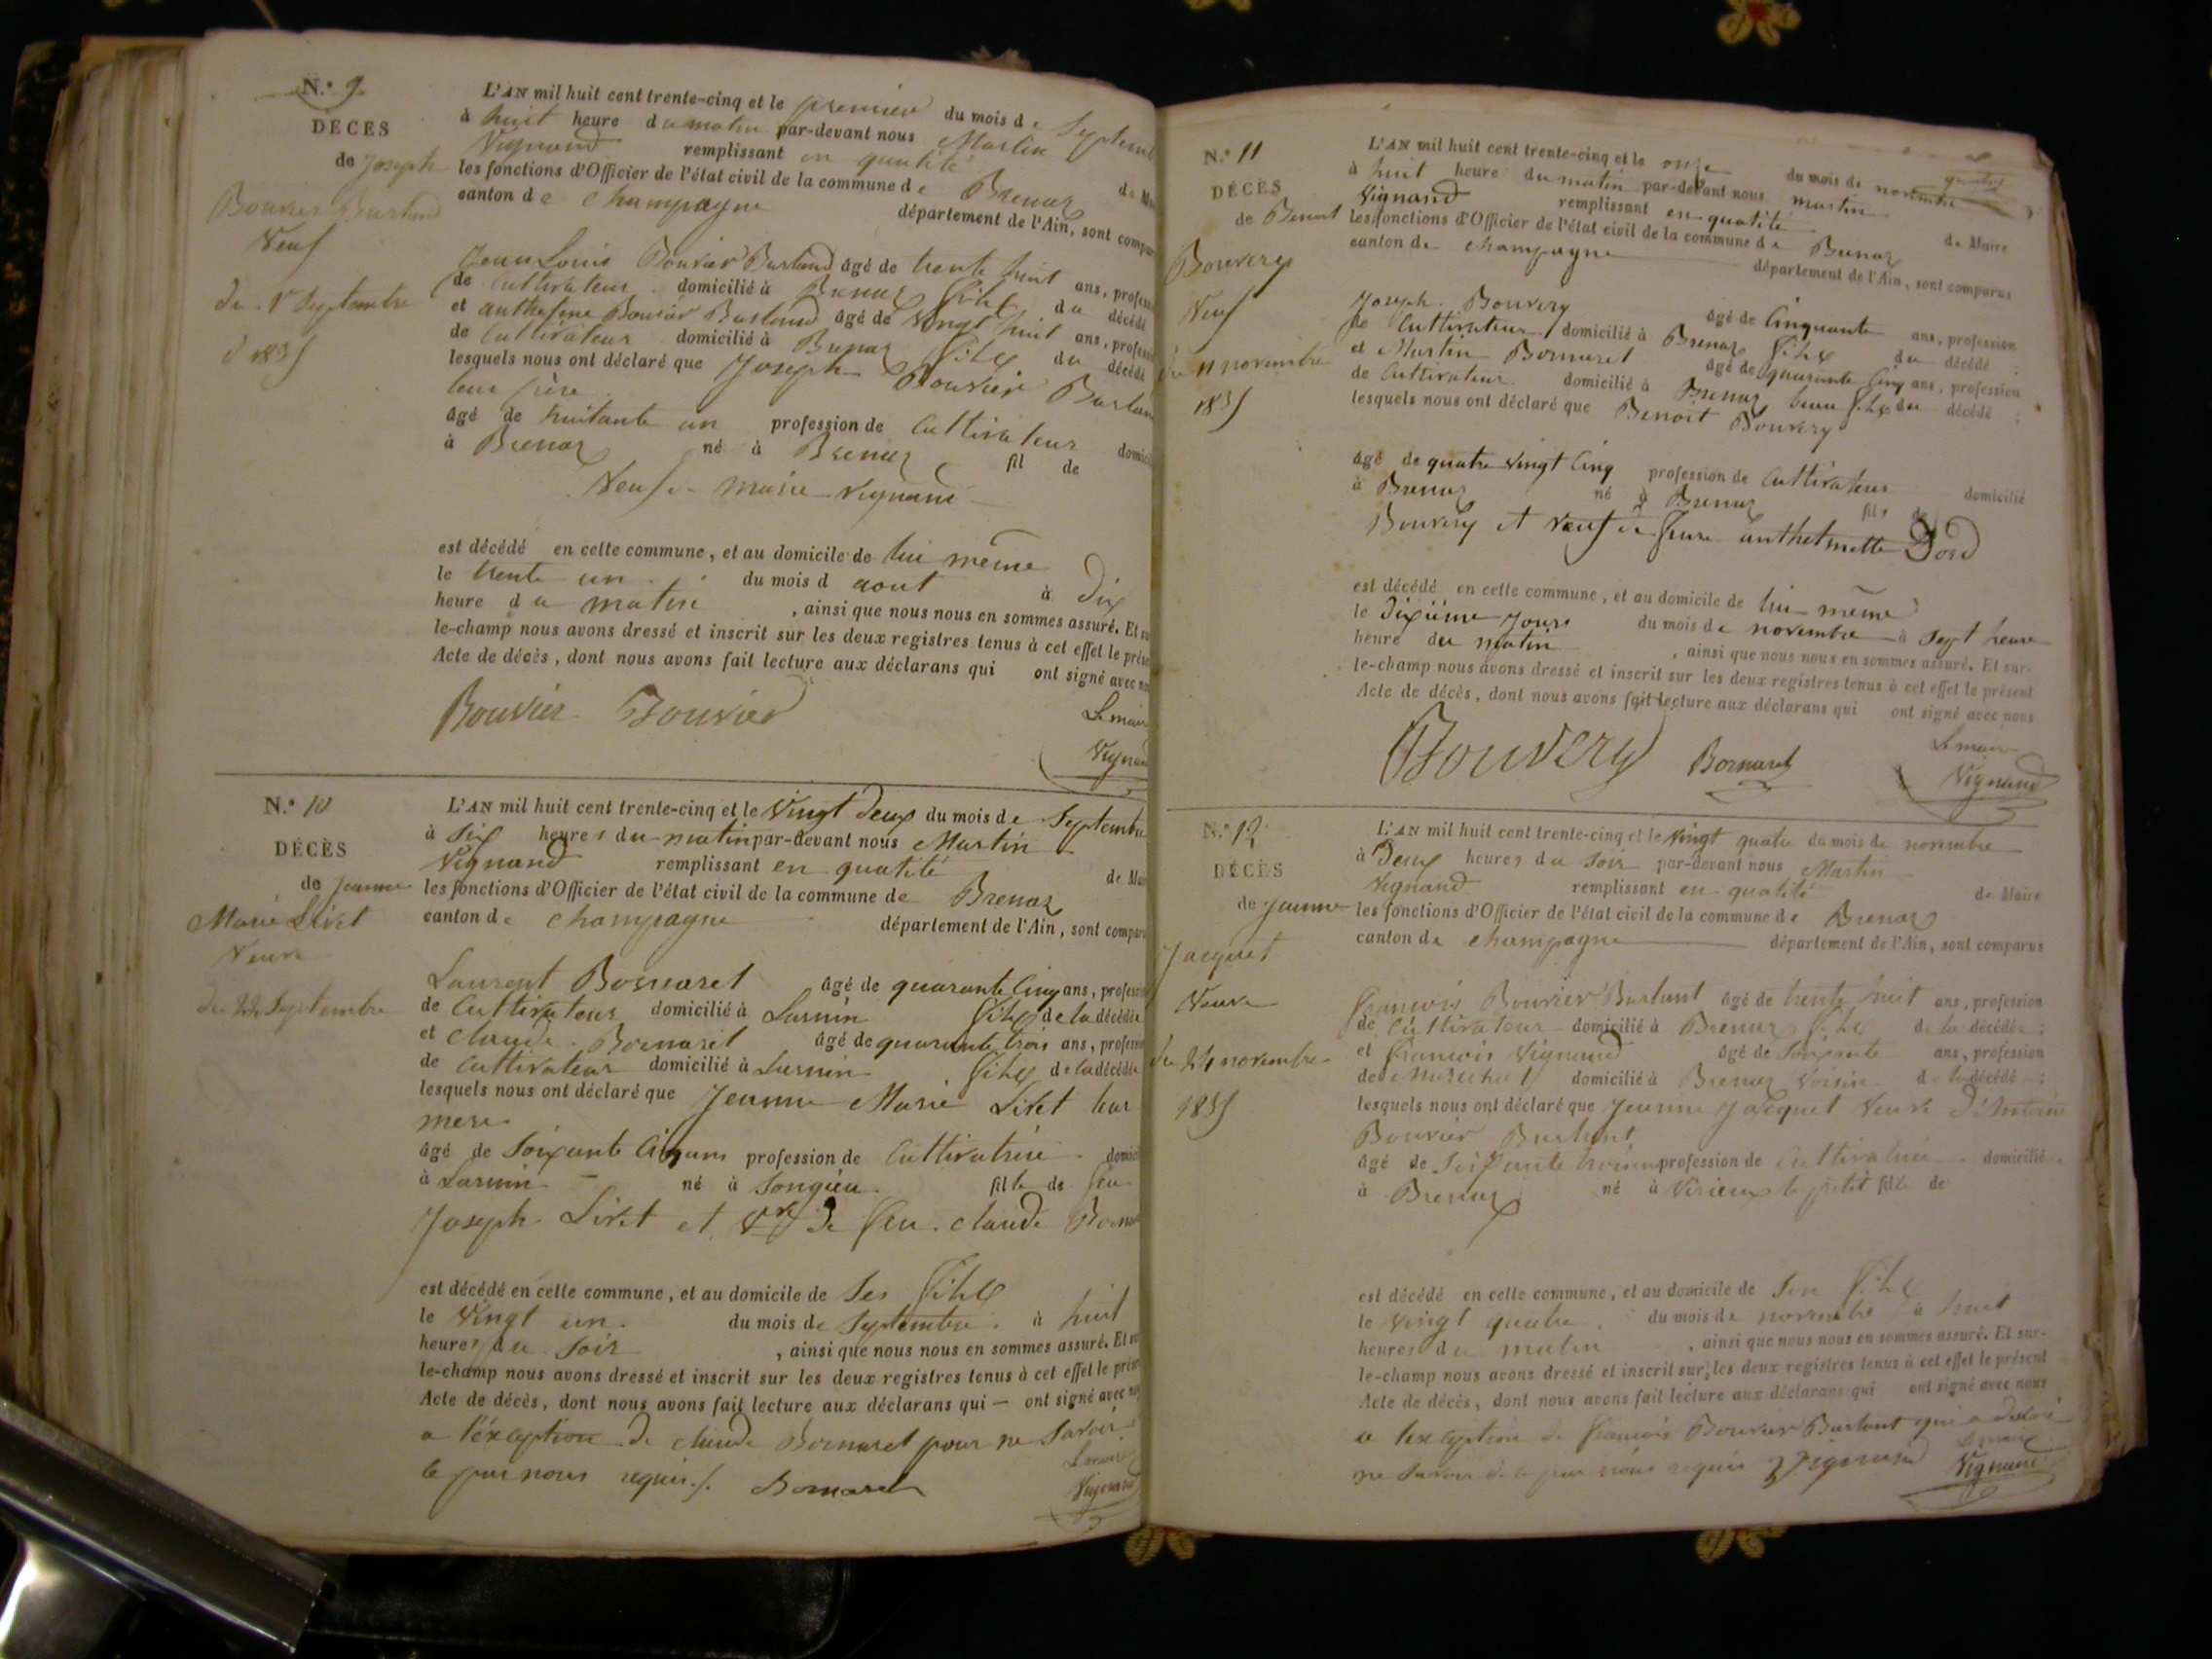 N.° 9.
DÉCÈS
de Joseph
Bouvier Burtand
Veuf
du 1er Septembre
d 1835
L'AN mil huit cent trente-cinq et le premier du mois de Septemb
à huit heure du matin par-devant nous Martin
Vignand remplissant en qualité de Ma
les fonctions d'Officier de l'état civil de la commune de Brenaz
canton de Champagne département de l'Ain, sont compar
Jean Louis Bouvier Burtand âgé de trente huit ans, profess
de cultivateur domicilié à Brenaz fils du décédé
et Bouvier Burtand âgé de vingt huit ans, profess
de cultivateur domicilié à Brenaz fils du décédé
lesquels nous ont déclaré que Joseph Bouvier Burtan
leur père
âgé de huitante un profession de Cultivateur domici
à Brenaz né à Brenaz fil de
Veuf de marie Vignand
est décédé en cette commune, et au domicile de lui même
le trente un du mois d aout à dix
heure du matin, ainsi que nous nous en sommes assuré. Et su
le-champ nous avons dressé et inscrit sur les deux registres tenus à cet effet le prése
Acte de décès, dont nous avons fait lecture aux déclarans qui ont signé avec no
Bouvier Bouvier Le maire
Vignand
N.° 10
DÉCÈS
de Jeanne
Marie Livet
Veuve
du 22 Septembre
L'AN mil huit cent trente-cinq et le Vingt deux du mois de Septembre
à Six heures du matin par-devant nous Martin
Vignand remplissant en qualité de Mai
les fonctions d'Officier de l'état civil de la commune de Brenaz
canton de Champagne département de l'Ain, sont compar
Laurent Bornaret âgé de quarante Cinq ans, profess
de Cultivateur domicilié à Lusnin fils de la décédée
et Claude Bornaret âgé de quarante trois ans, profess
de cultivateur domicilié à Lusnin fils de la décédée
lesquels nous ont déclaré que Jeanne Marie Livet leur
mere
âgé de Soixante Cinq ans profession de Cultivatrice domici
à né à Songieu fille de feu
Joseph Livet et Vve de feu Claude Borna
est décédé en cette commune, et au domicile de Ses fils
le Vingt un du mois de Septembre à huit
heures du Soir, ainsi que nous nous en sommes assuré. Et su
le-champ nous avons dressé et inscrit sur les deux registres tenus à cet effet le prése
Acte de décès, dont nous avons fait lecture aux déclarans qui — ont signé avec nou
a l'exception de Claude Bornaret pour ne Savoir
le par nous requis ./. Bornaret Le maire
Vignand
N.° 11
DÉCÈS
de Benoit
Bouvery
Veuf
du 11 novembre
1835
L'AN mil huit cent trente-cinq et le onze du mois de novembre
à huit heure du matin par-devant nous martin
Vignand remplissant en qualité de Maire
les fonctions d'Officier de l'état civil de la commune de Brenaz
canton de Champagne département de l'Ain, sont comparus
Joseph Bouvery âgé de Cinquante ans, profession
de Cultivateur domicilié à Brenaz fils du décédé ;
et Martin Bornaret âgé de quarante Cinq ans, profession
de Cultivateur domicilié à Brenaz beau fils du décédé ;
lesquels nous ont déclaré que Benoit Bouvery
âgé de quatre vingt Cinq profession de Cultivateur domicilié
à Brenaz né à Brenaz fils de
Bouvery et veuf de feue anthelmette
est décédé en cette commune, et au domicile de lui même
le dixième Jours du mois de novembre à Sept heure
heure du matin, ainsi que nous nous en sommes assuré. Et sur-
le-champ nous avons dressé et inscrit sur les deux registres tenus à cet effet le présent
Acte de décès, dont nous avons fait lecture aux déclarans qui ont signé avec nous
Bouvery Bornaret Le maire
Vignand
N.° 12
DÉCÈS
de Jeanne
Jacquet
Veuve
du 24 novembre
1835
L'AN mil huit cent trente-cinq et le Vingt quatre du mois de novembre
à Deux heures du Soir par-devant nous Martin
Vignand remplissant en qualité de Maire
les fonctions d'Officier de l'état civil de la commune de Brenaz
canton de Champagne département de l'Ain, sont comparus
françois Bouvier Burtant âgé de trente huit ans, profession
de Cultivateur domicilié à Brenaz fils de la décédée ;
et francois Vignand âgé de Soixante ans, profession
de Marechal domicilié à Brenaz Voisin de la décédé ;
lesquels nous ont déclaré que Jeanne Jacquet Veuve d'Antoine
Bouvier Burtant
âgé de Soixante trois ans profession de Cultivatrice domicilié
à Brenaz né à Virieux le petit fille de
est décédé en cette commune, et au domicile de Son fils
le vingt quatre du mois de novembre à huit
heures du matin, ainsi que nous nous en sommes assuré. Et sur-
le-champ nous avons dressé et inscrit sur les deux registres tenus à cet effet le présent
Acte de décès, dont nous avons fait lecture aux déclarans qui ont signé avec nous
a l'exception de francois Bouvier Burtant qui a déclaré
ne Savoir de ce par nous requis Vignand Le maire
Vignand